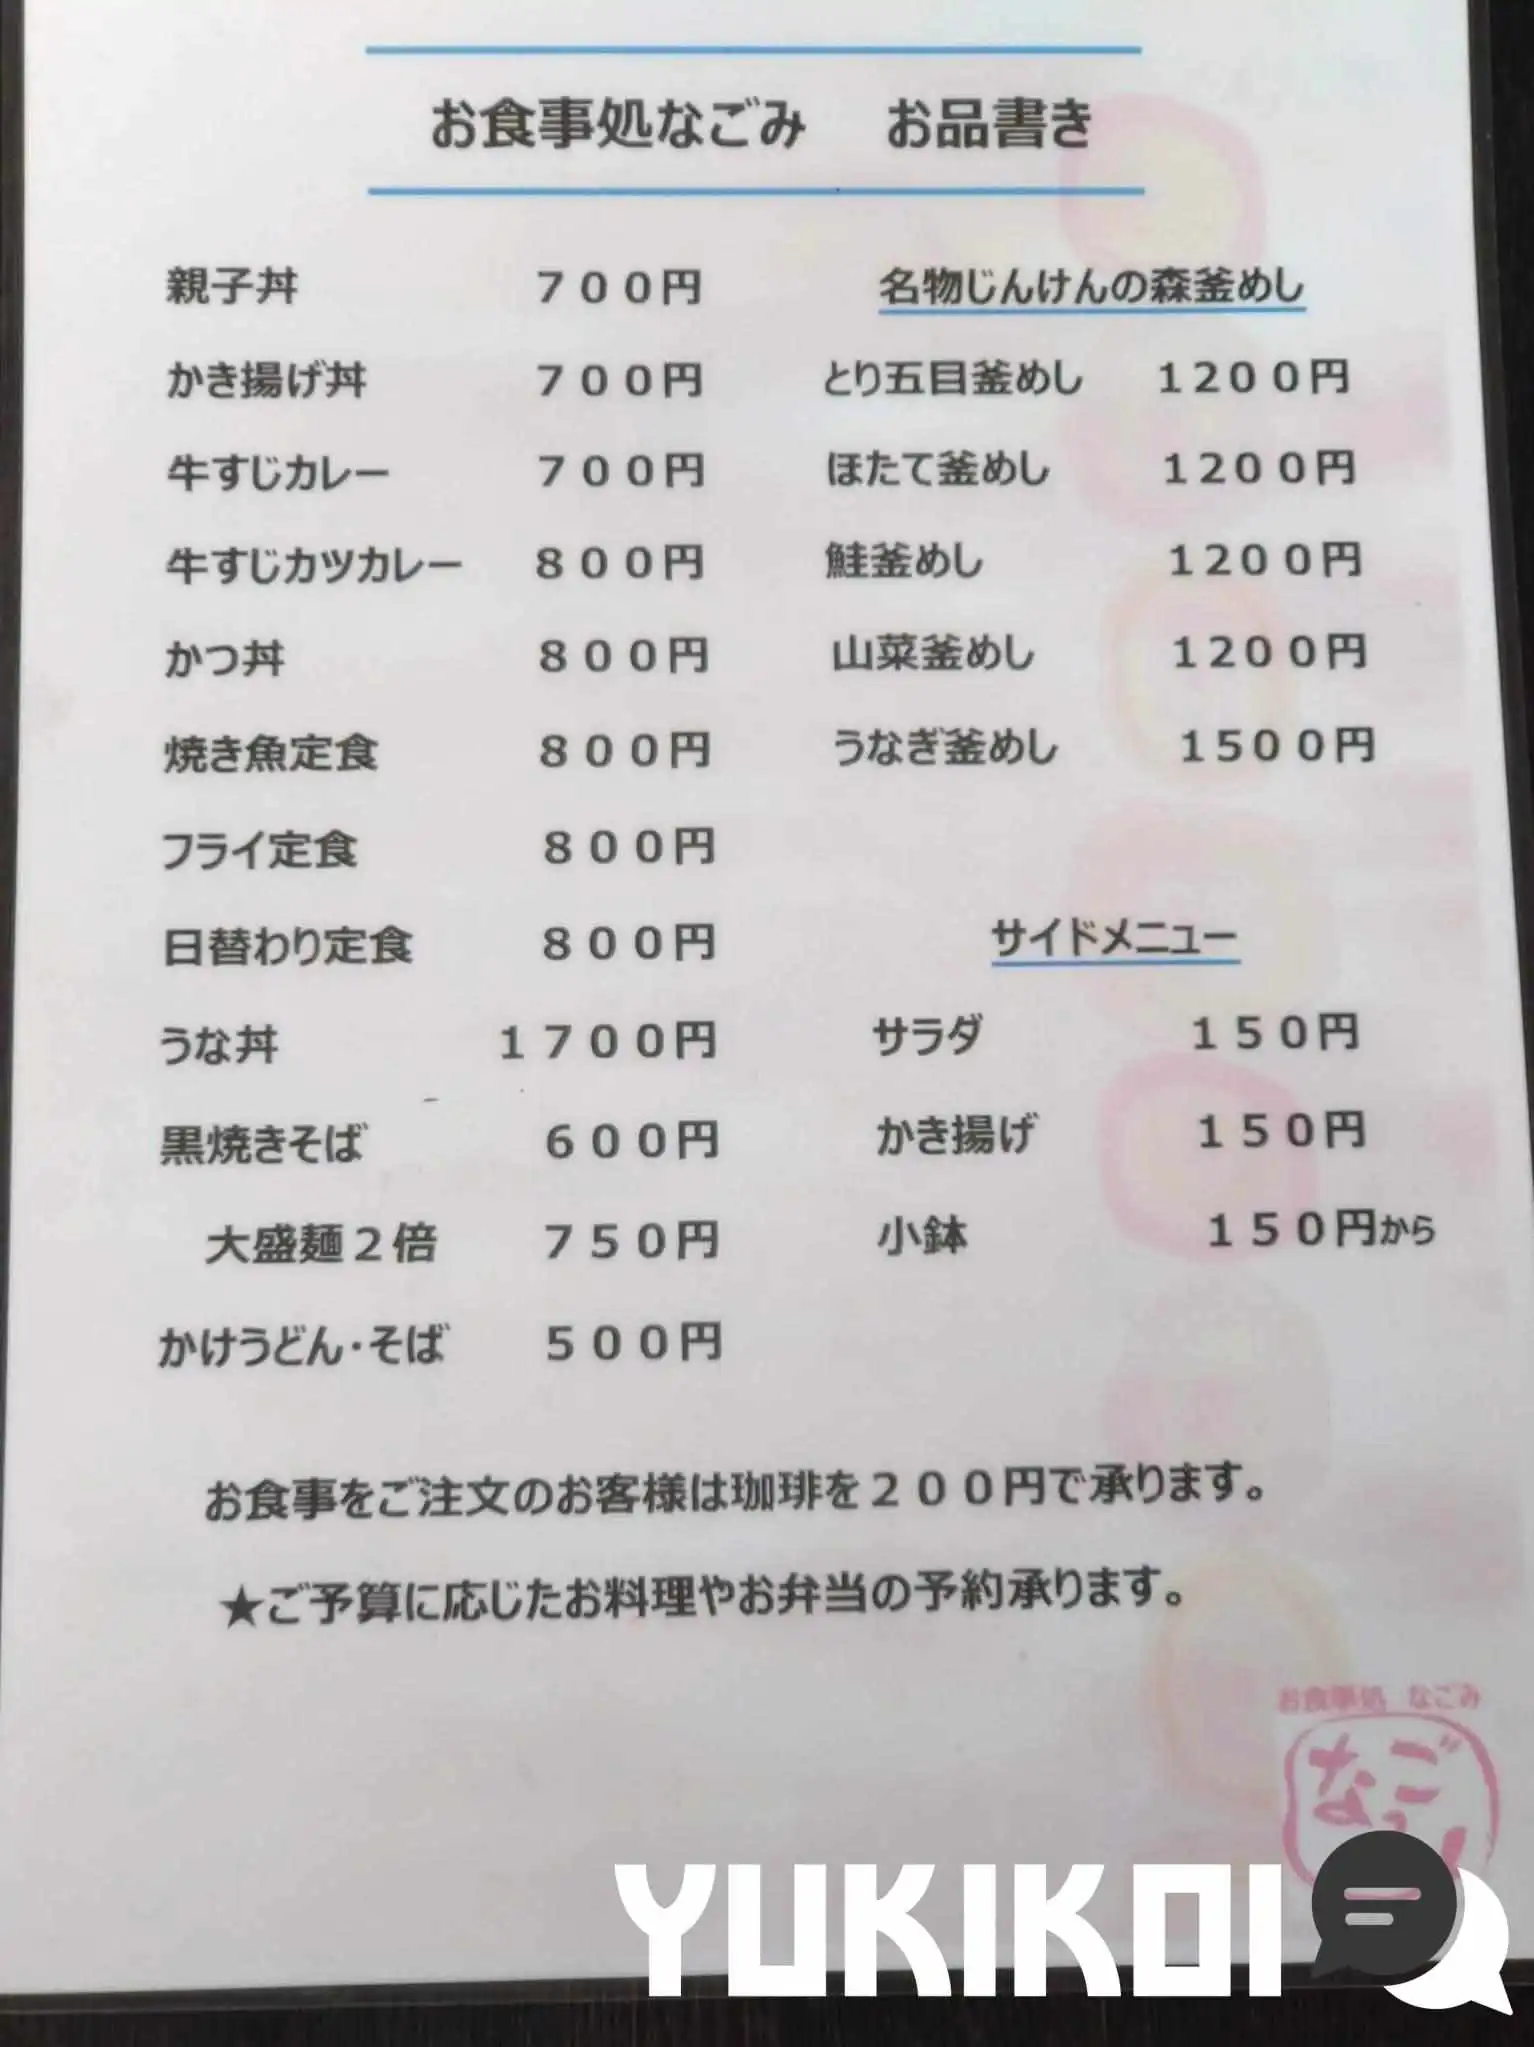 お食事処なごみ お品書き
親子丼 ７００円
かき揚げ丼 ７００円
牛すじカレー ７００円
牛すじカツカレー ８００円
かつ丼 ８００円
焼き魚定食 ８００円
フライ定食 ８００円
日替わり定食 ８００円
うな丼 １７００円
黒焼きそば ６００円
大盛麺２倍 ７５０円
かけうどん・そば ５００円
名物じんけんの森釜めし
とり五目釜めし １２００円
ほたて釜めし １２００円
鮭釜めし １２００円
山菜釜めし １２００円
うなぎ釜めし １５００円
サイドメニュー
サラダ １５０円
かき揚げ １５０円
小鉢 １５０円から
お食事をご注文のお客様は珈琲を２００円で承ります。
★ご予算に応じたお料理やお弁当の予約承ります。
お食事処 なごみ
なご
YUKIKOI